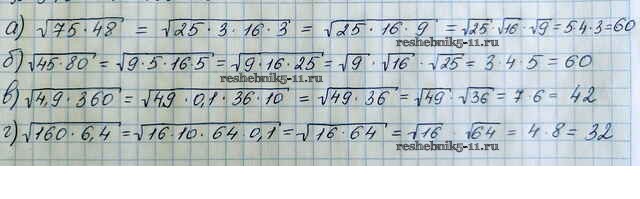 а) √75·48 = √25·3·16·3 = √25·16·9 = √25·√16·√9 = 5·4·3=60
reshebnik5-11.ru
б) √45·80 = √9·5·16·5 = √9·16·25 = √9·√16·√25 = 3·4·5 = 60
reshebnik5-11.ru
в) √4,9·360 = √49·0,1·36·10 = √49·36 = √49·√36 = 7·6 = 42
г) √160·6,4 = √16·10·64·0,1 = √16·64 = √16·√64 = 4·8 = 32
reshebnik5-11.ru